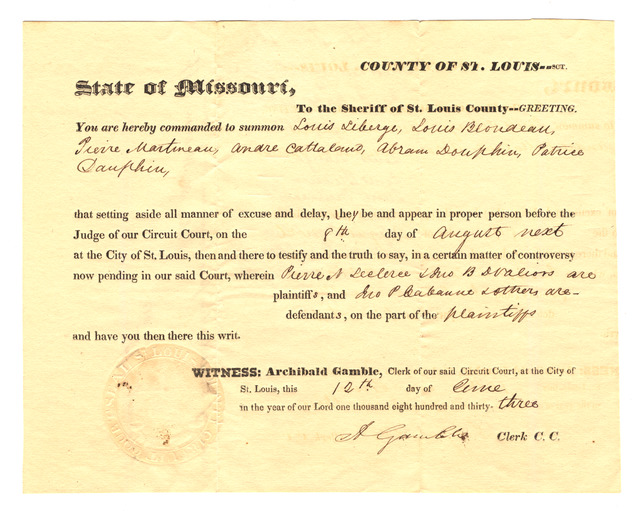 COUNTY OF ST. LOUIS--SCT.
State of Missouri,
To the Sheriff of St. Louis County--GREETING.
You are hereby commanded to summon Louis Liberge, Louis Blondeau,
Pierre Martineau, Andre Cattaland, Abram Douphin, Patrice
Dauphin,
that setting aside all manner of excuse and delay, they be and appear in proper person before the
Judge of our Circuit Court, on the 8th day of August next
at the City of St. Louis, then and there to testify and the truth to say, in a certain matter of controversy
now pending in our said Court, wherein Pierre N Leclerce & Jno B are
plaintiffs, and Jno P Cabanne & others are
defendants, on the part of the plaintiffs
and have you then there this writ.
WITNESS: Archibald Gamble, Clerk of our said Circuit Court, at the City of
St. Louis, this 12th day of
in the year of our Lord one thousand eight hundred and thirty. three
A Gamble Clerk C. C.